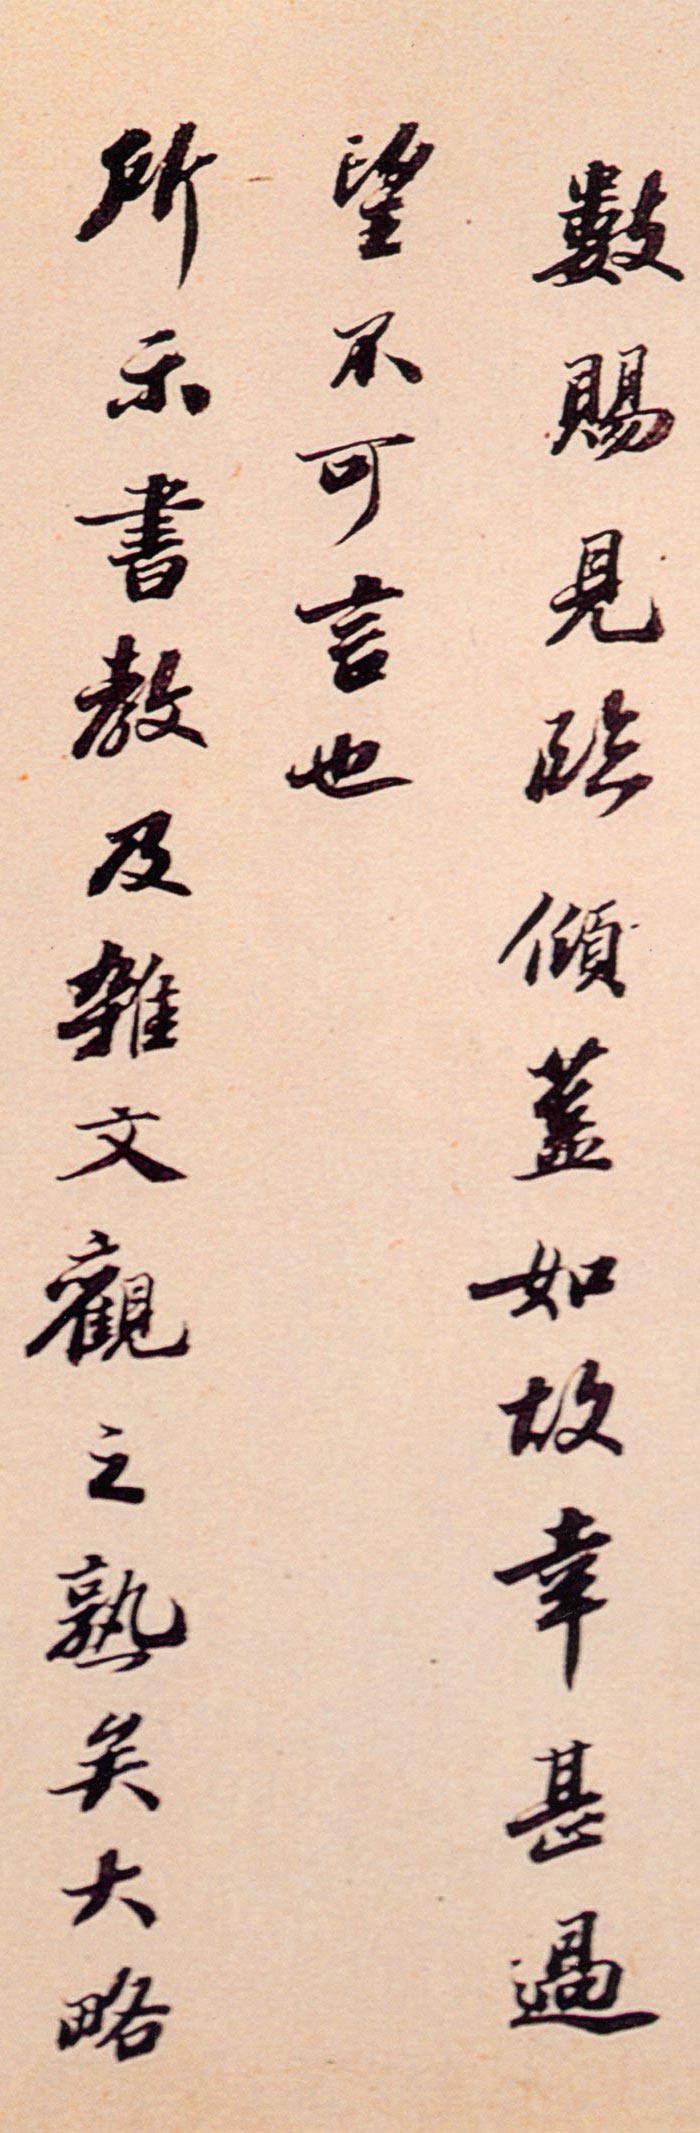 數賜見臨傾蓋如故幸甚過
望不可言也
所示書教及雜文觀之熟矣大略